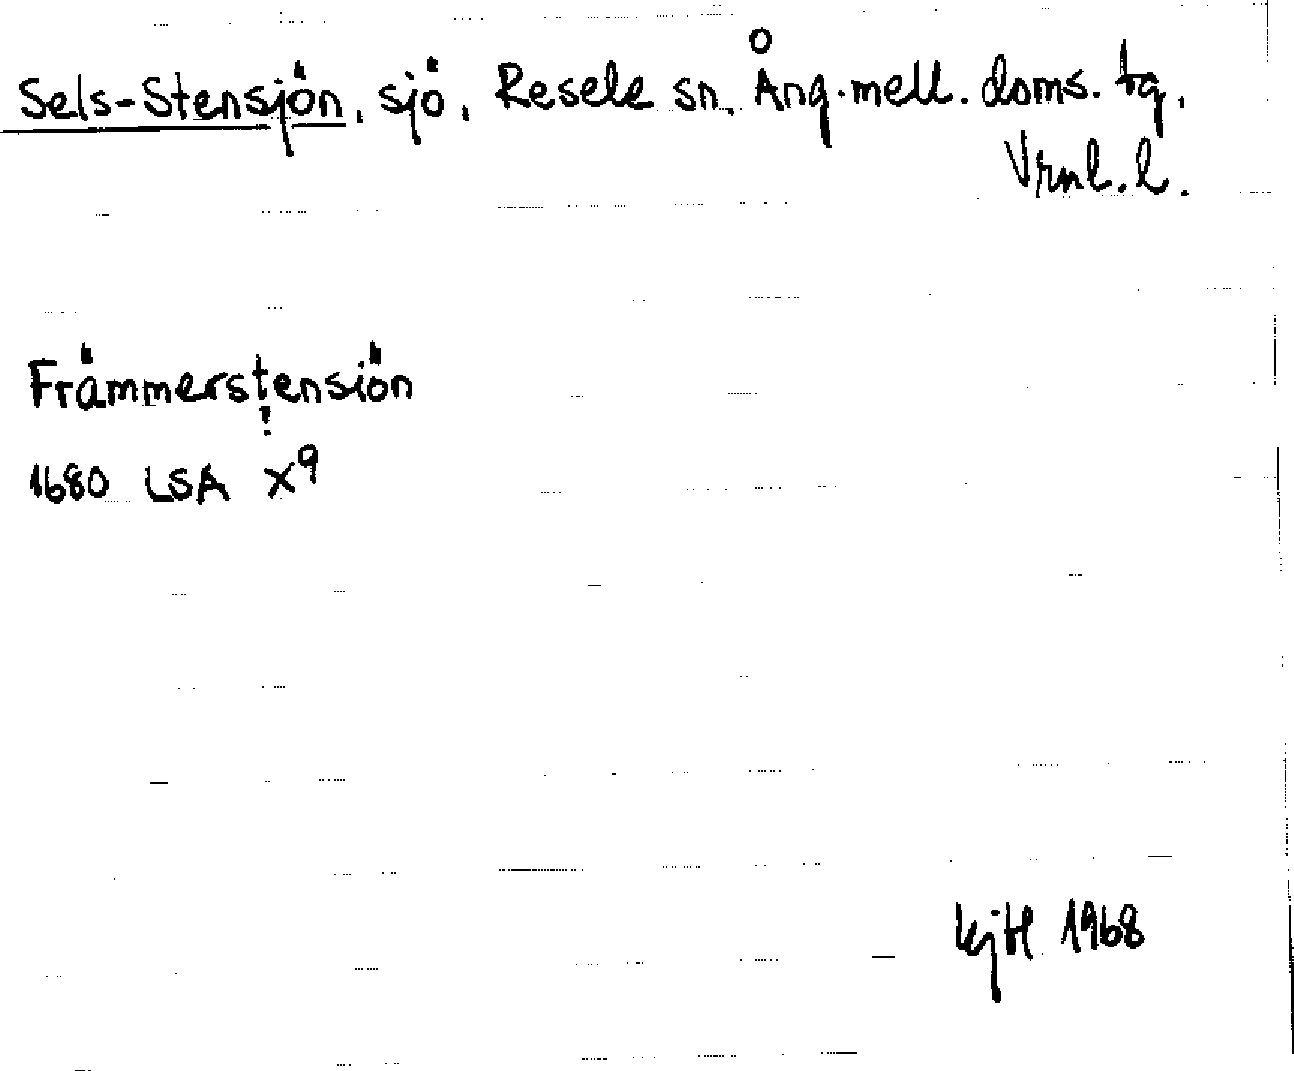 Sels-Stensjön, sjö, Resele sn. Ång. mell. doms. tg.
Vrnl. l.
Främmerstensiön
!
1680 LSA X9
1968